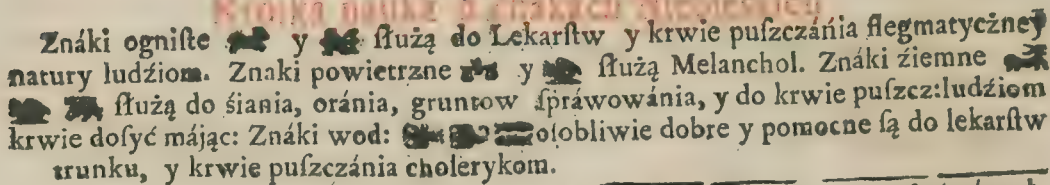 Znáki ogniſte y ſłużą do Lekarſtw y krwie puſzczánia flegmatyczneỳ
natury ludźiom. Znaki powietrzne y ſłużą Melanchol. Znáki źiemne
ſłużą do śiania, oránia, gruntow ſpráwowánia, y do krwie puſzcz:ludźiom
krwie doſyć májąc: Znáki wod: oſobliwie dobre y pomocne ſą do lekarſtw
trunku, y krwie puſzczánia cholerykom.